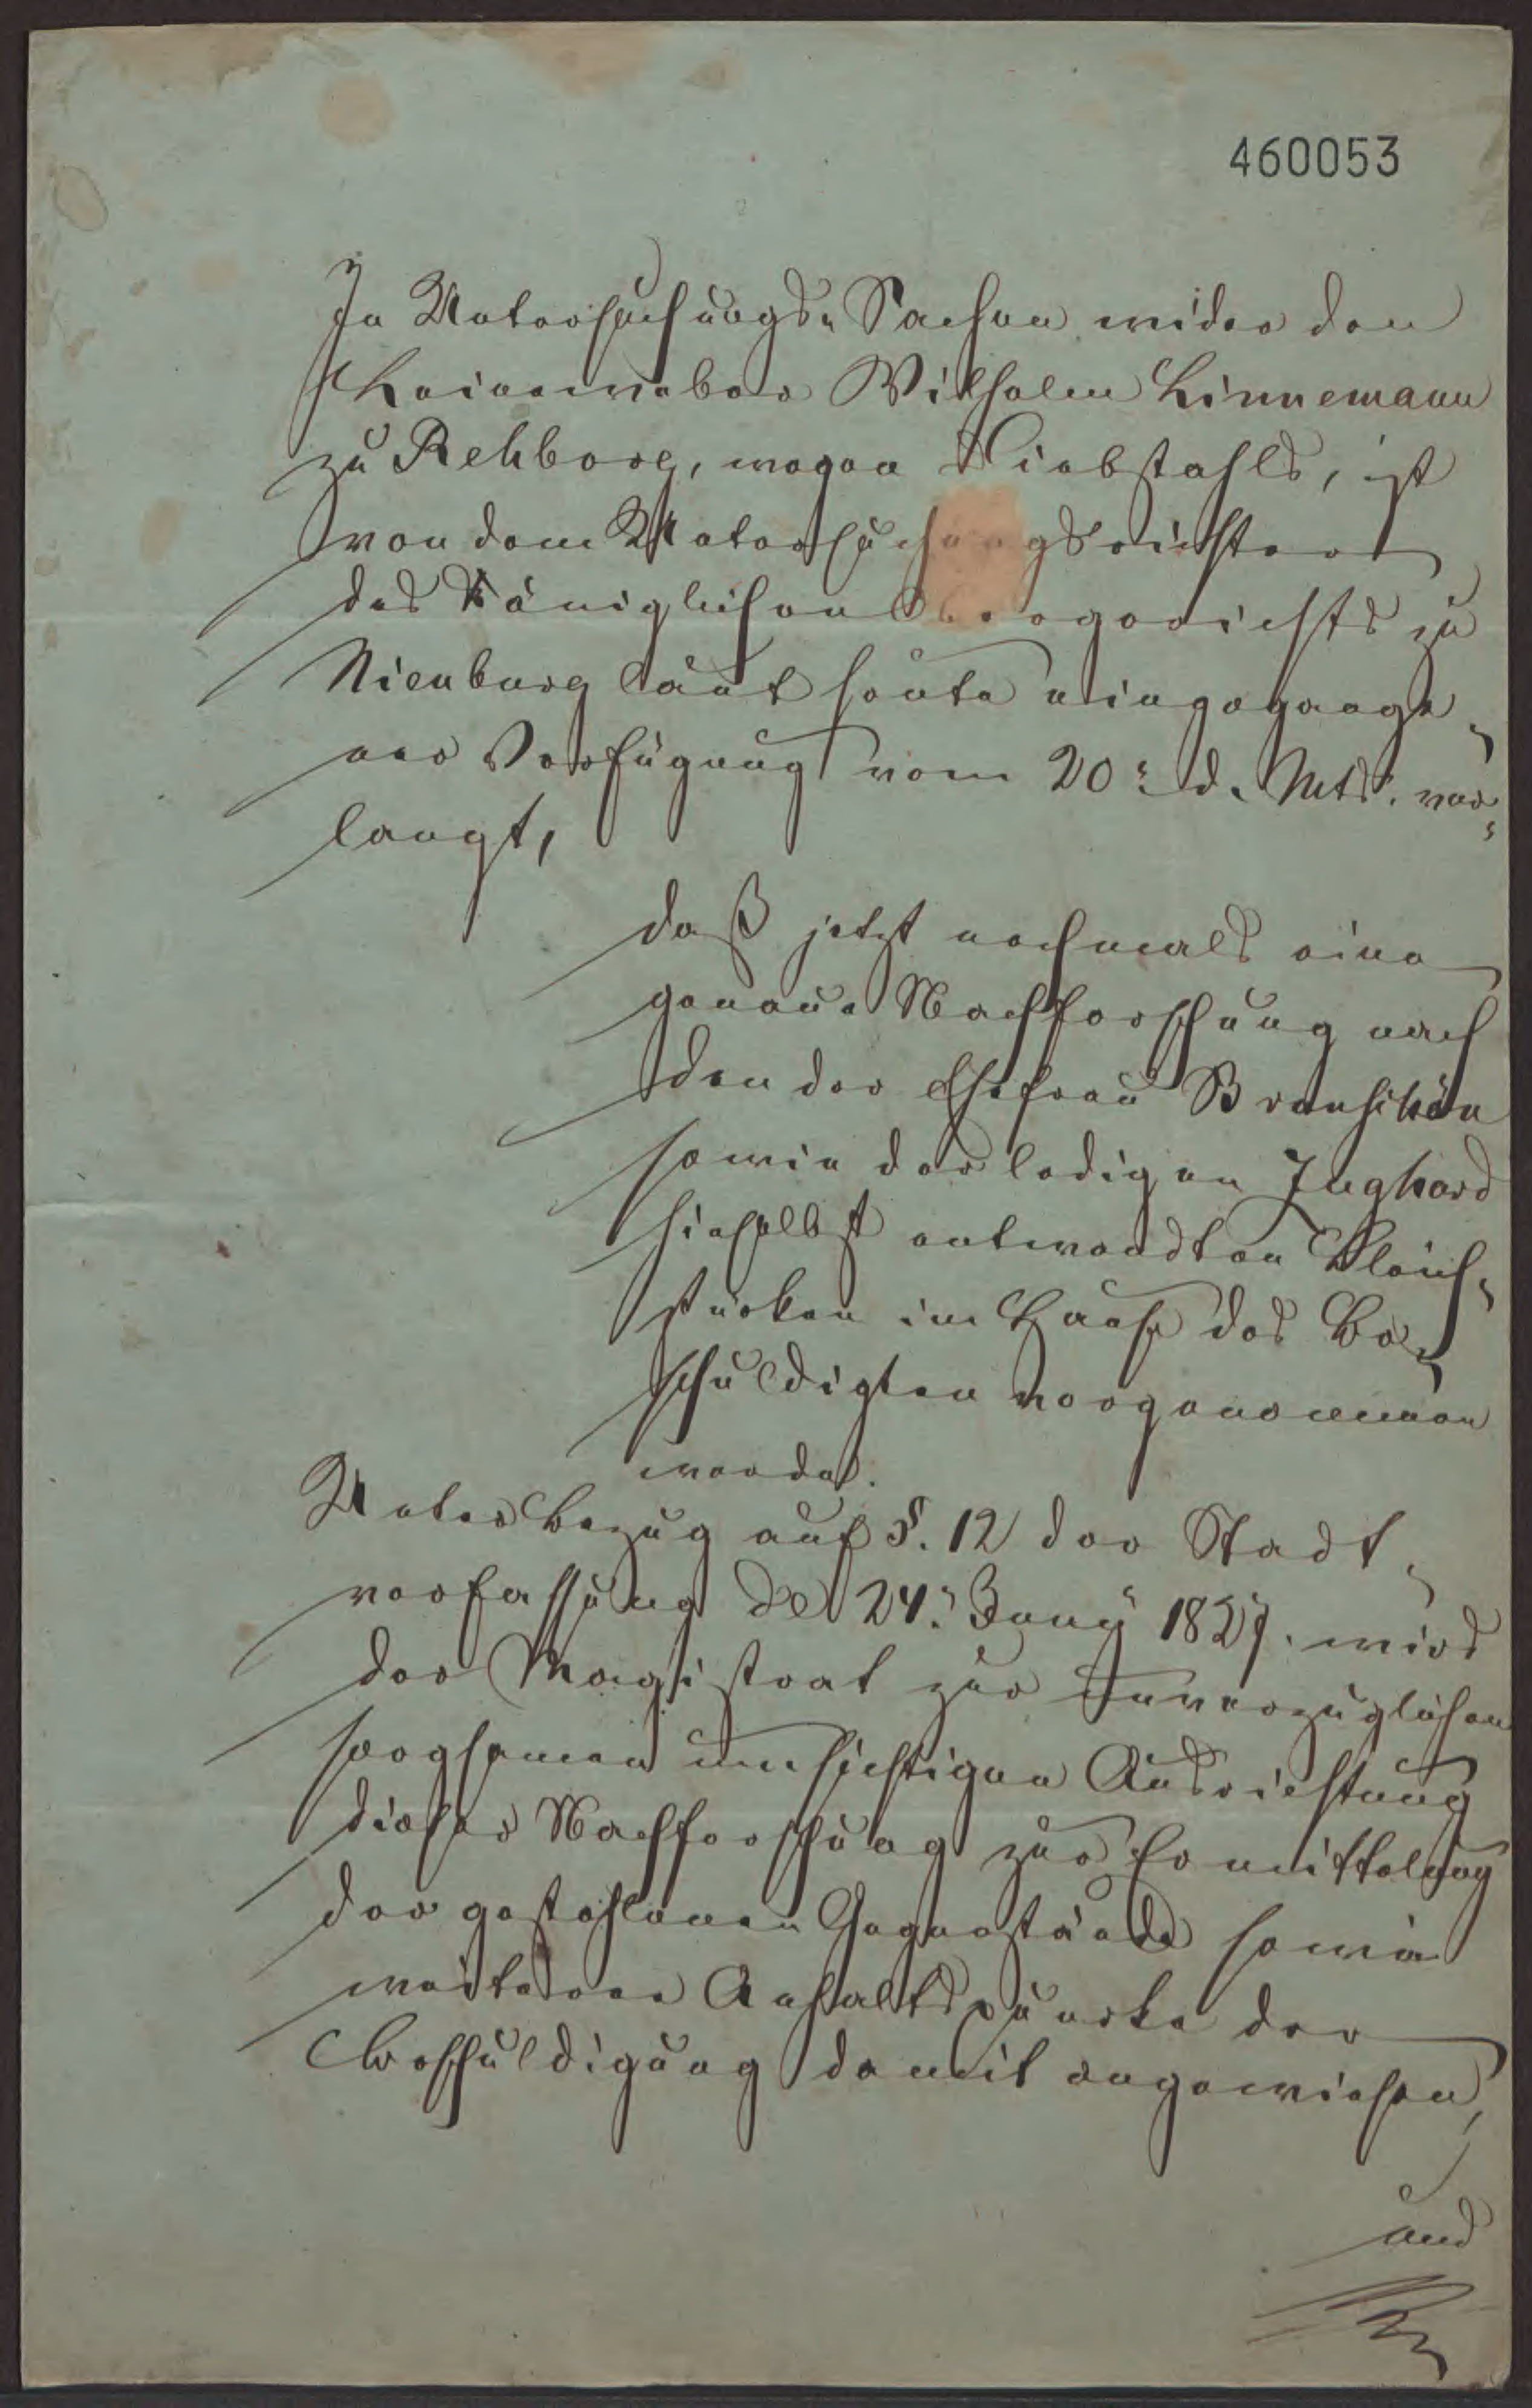 460053
In Untersuchungs-Sachen wider den
Leineweber Wilhelm Linnemann
zu Rehburg, wegen Diebstahls, ist
von dem Untersuchungsrichter
des Königlichen Obergerichts zu
Nienburg laut heute eingegange-
ner Verfügung vom 20. d. Mts. ver-
langt,
daß jetzt nochmals eine
genaue Nachforschung nach
den der Ehefrau
sowie der ledigen Inghard
hieselbst entwendten
stücken im Hause des Be-
schuldigten vorgenommen
werde.
Unter Bezug auf §. 12 der Stadt-
verfassung de 24. Juny 1827. wird
der Magistrat zur unverzüglichen
sorgsamen umsichtigen Ausrichtung
dieser Nachforschung zur Ermittelung
der gestohlenen Gegenstände sowie
weiterer Anhaltspunkte der
Beschuldigung damit angewiesen,
und